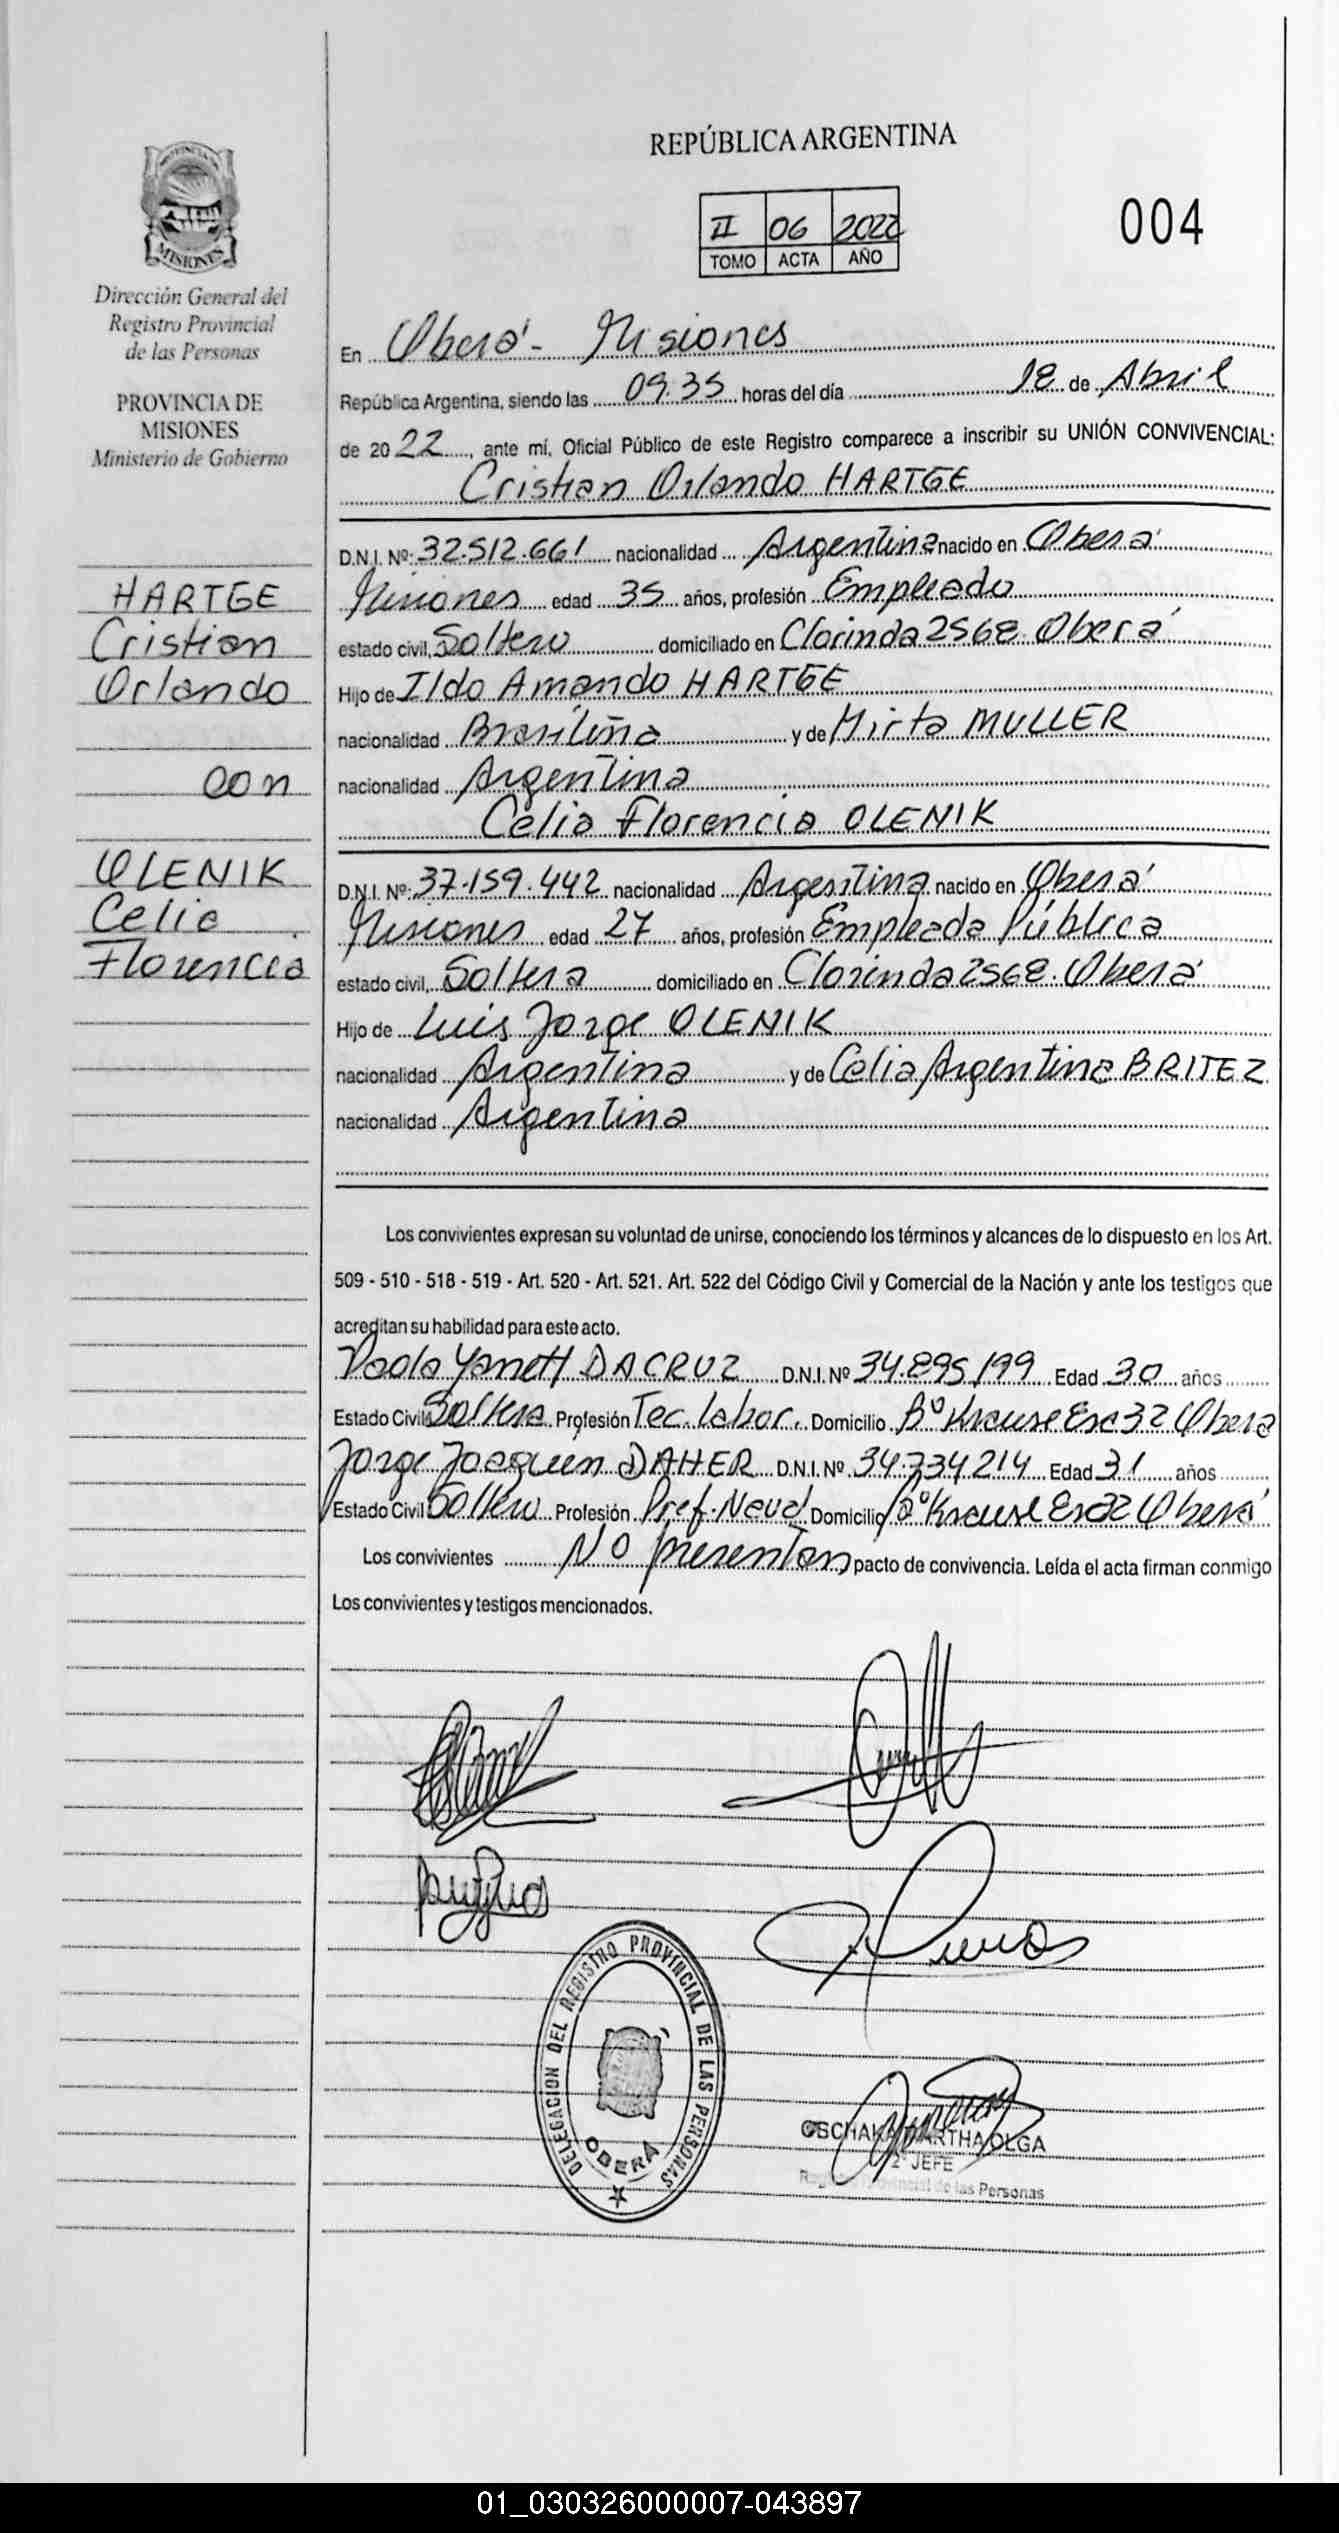 REPÚBLICA ARGENTINA
PROVINCIA DE
MISIONES
II 06 2022
TOMO ACTA AÑO
004
Dirección General del
Registro Provincial
de las Personas
PROVINCIA DE
MISIONES
Ministerio de Gobierno
HARTGE
Cristian
Orlando
con
OLENIK
Celia
Florencia
En Oberá - Misiones
República Argentina, siendo las 09:35 horas del día 18 de Abril
de 2022, ante mí, Oficial Público de este Registro comparece a inscribir su UNIÓN CONVIVENCIAL:
Cristian Orlando HARTGE
D.N.I. Nº 32.512.661 nacionalidad Argentina nacido en Oberá
Misiones edad 35 años, profesión Empleado
estado civil, Soltero domiciliado en Clorinda 2568. Oberá
Hijo de Ildo Amando HARTGE
nacionalidad Brasileña y de Mirta MULLER
nacionalidad Argentina
Celia Florencia OLENIK
D.N.I. Nº 37.159.442 nacionalidad Argentina nacido en Oberá
Misiones edad 27 años, profesión Empleada Pública
estado civil, Soltera domiciliado en Clorinda 2568. Oberá
Hijo de Luis Jorge OLENIK
nacionalidad Argentina y de Celia Argentina BRITEZ
nacionalidad Argentina
Los convivientes expresan su voluntad de unirse, conociendo los términos y alcances de lo dispuesto en los Art.
509 - 510 - 518 - 519 - Art. 520 - Art. 521. Art. 522 del Código Civil y Comercial de la Nación y ante los testigos que
acreditan su habilidad para este acto.
Paola Yanett DA CRUZ D.N.I. Nº 34.895.199 Edad 30 años
Estado Civil Soltera Profesión Tec. Labor. Domicilio Bº Krause Esc 32 Oberá
Jorge Joaquin DAHER D.N.I. Nº 34.734.214 Edad 31 años
Estado Civil Soltero Profesión Pref. Naval Domicilio Bº Krause Esc 32 Oberá
Los convivientes No presentan pacto de convivencia. Leída el acta firman conmigo
Los convivientes y testigos mencionados.
DELEGACION DEL REGISTRO PROVINCIAL DE LAS PERSONAS
OBERÁ
MARTHA OLGA
2º JEFE
Registro Provincial de las Personas
01_030326000007-043897